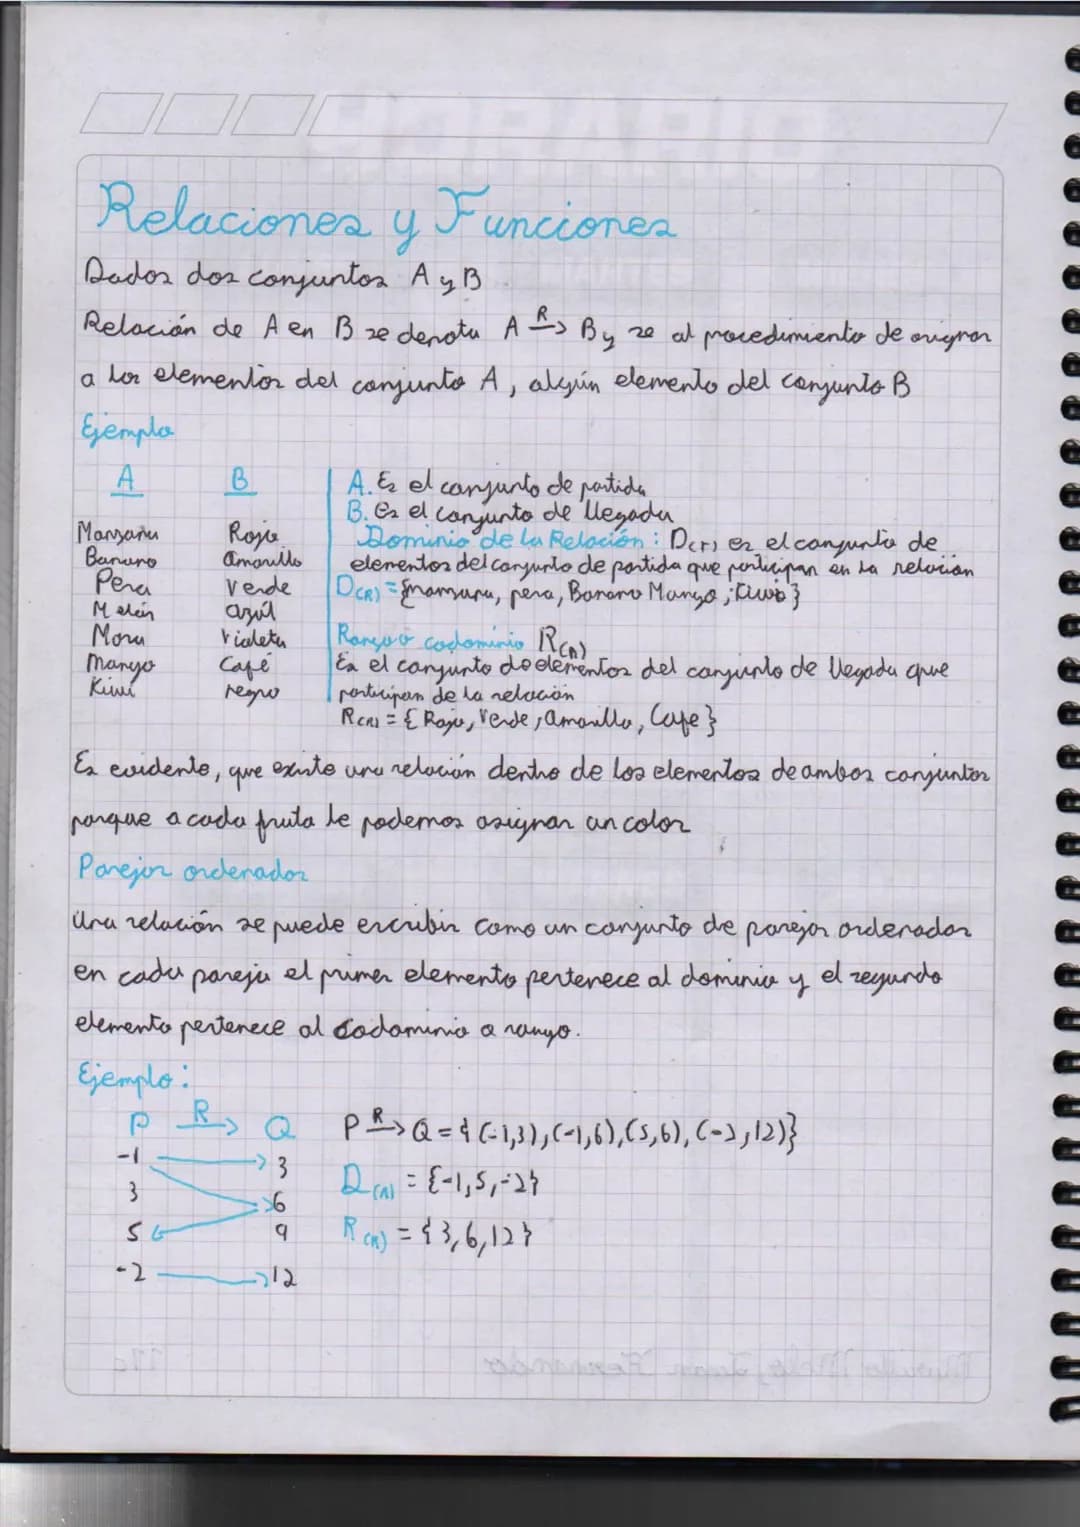 Relaciones y Funciones
Dados dos conjuntos A y B
Relación de A en B se denota A R→ B y se al procedimiento de asignar
a los elementos del conjunto A, algún elemento del conjunto B
Ejemplo
A B
Manzana Rojo
Banano amarillo
Pera verde
Melón azul
Mora violeta
Mango Café
Kiwi negro
A. Es el conjunto de partida
B. Es el conjunto de llegada
Dominio de la Relación: D(r) es el conjunto de
elementos del conjunto de partida que participan en la relación
D(R) = {manzana, pera, Banano Mango; Kiwi}
Rango o codominio R(R)
Es el conjunto de elementos del conjunto de llegada que
participan de la relación
R(R) = {Rojo, Verde, amarillo, Cafe}
Es evidente, que existe una relación dentro de los elementos de ambos conjuntos
porque a cada fruta le podemos asignar un color
Parejas ordenadas
Una relación se puede escribir como un conjunto de parejas ordenadas
en cada pareja el primer elemento pertenece al dominio y el segundo
elemento pertenece al codominio o rango.
Ejemplo:
P R→ Q P R→ Q = {(-1,3),(-1,6),(5,6),(-2,12)}
-1 3
3 6
5 9
-2 12
D(R) = {-1,5,-2}
R(R) = {3,6,12}